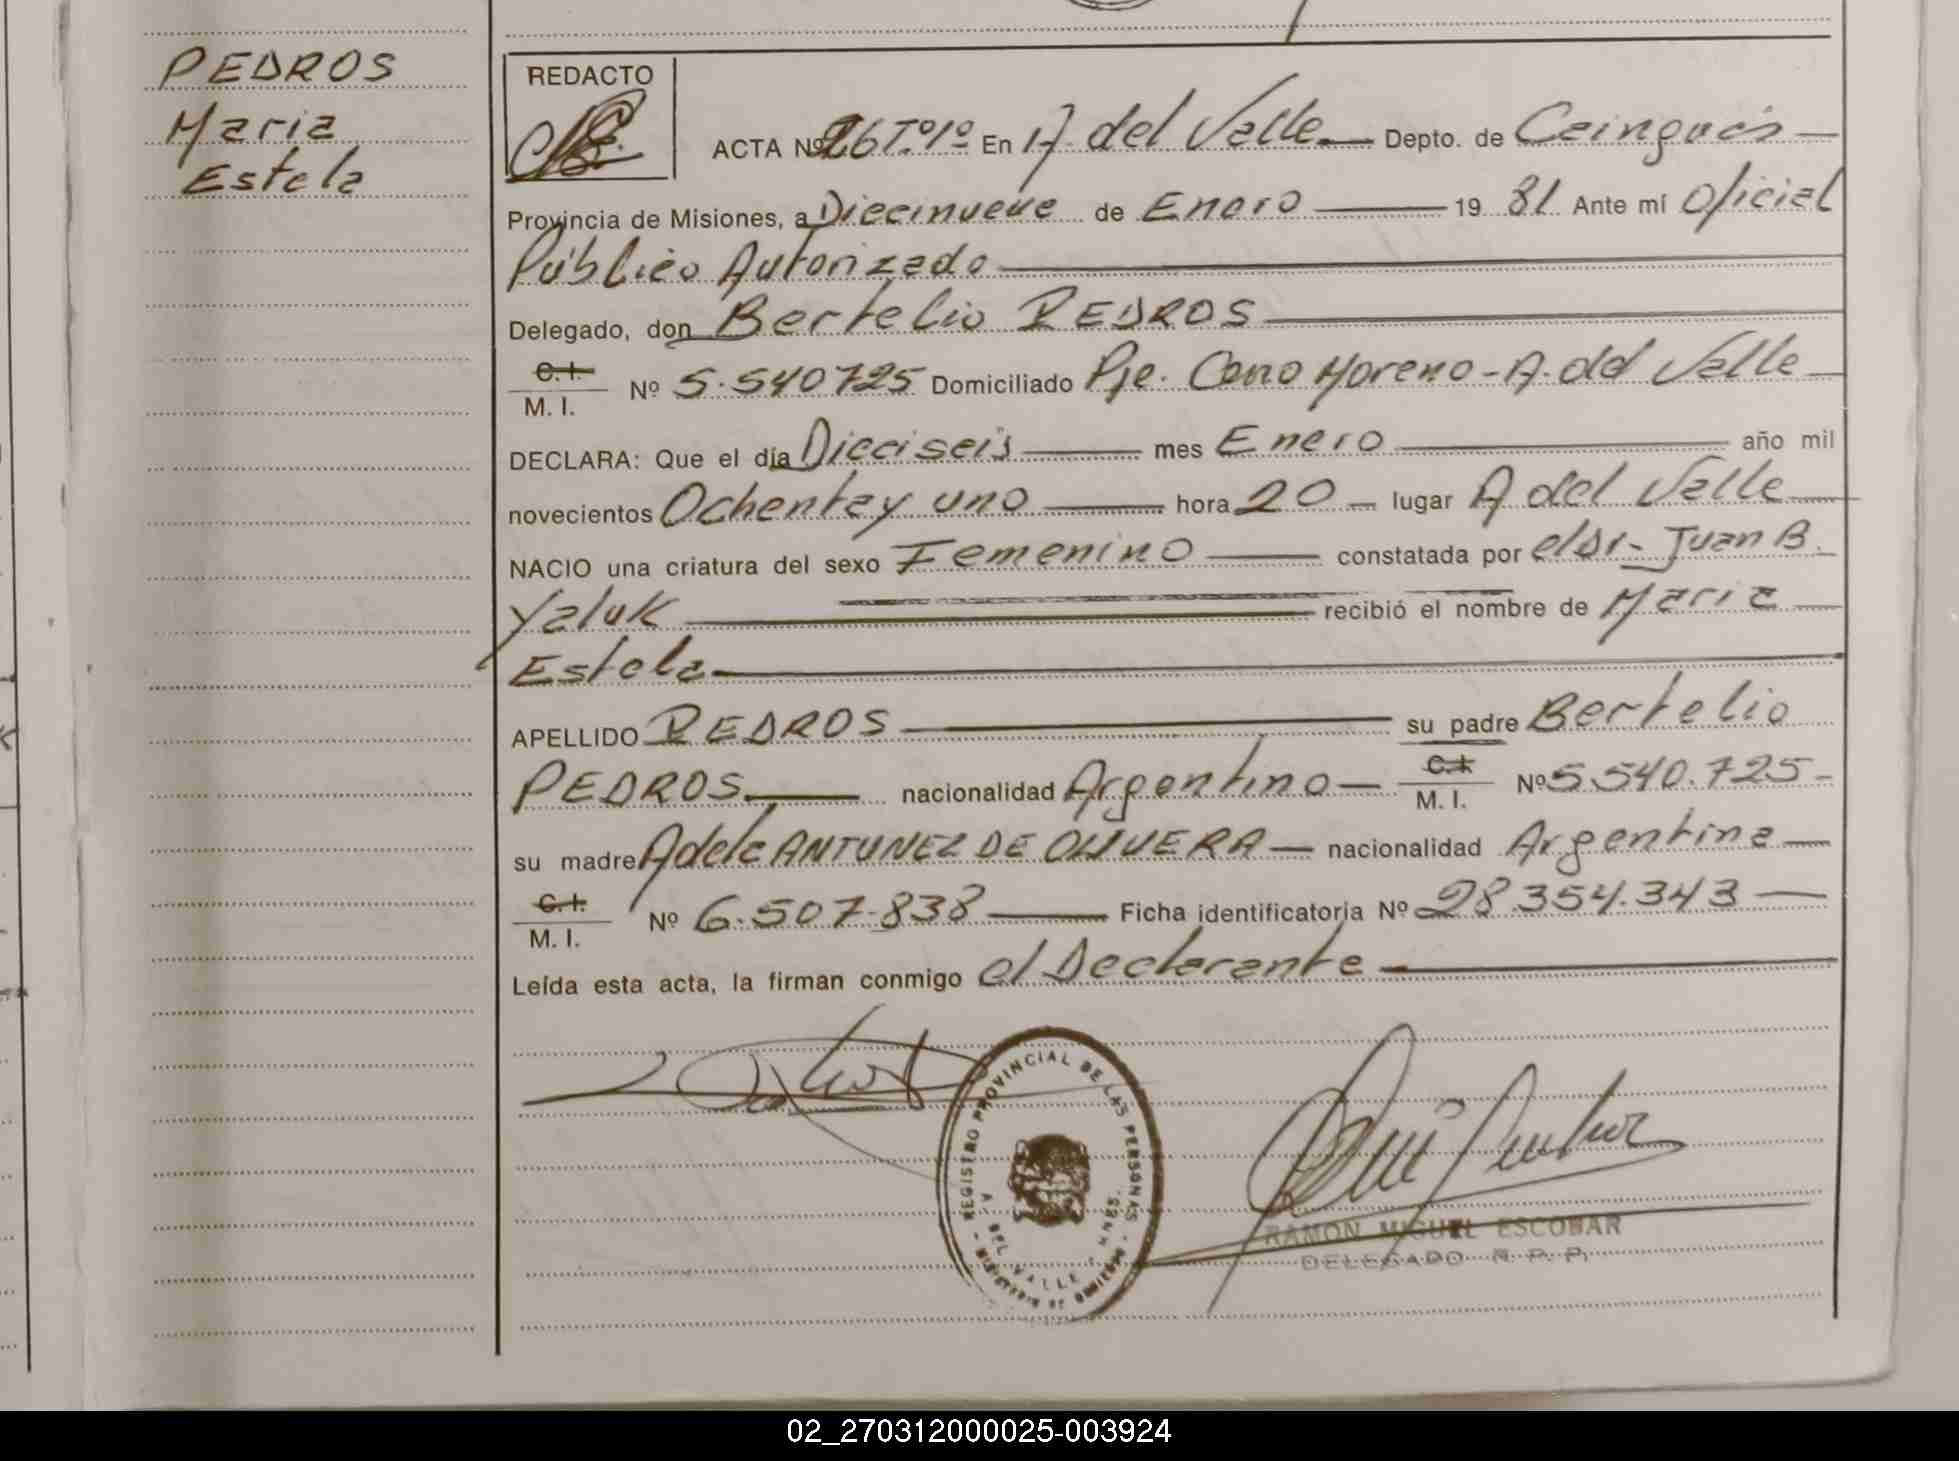 PEDROS
Maria
Estela
REDACTO
ACTA Nº 26 Tº 1º En A. del Valle Depto. de Cainguás
Provincia de Misiones, a Diecinueve de Enero 19 81. Ante mí Oficial
Público Autorizado
Delegado, don Bertelio PEDROS
C.I.
M. I. Nº 5.540725 Domiciliado Pje. Cano Moreno - A. del Valle
DECLARA: Que el día Dieciseis mes Enero año mil
novecientos Ochenta y uno hora 20 lugar A del Valle
NACIO una criatura del sexo Femenino constatada por el Dr. Juan B.
Yaluk recibió el nombre de Maria
Estela
APELLIDO PEDROS su padre Bertelio
PEDROS nacionalidad Argentino C.I. M. I. Nº 5.540.725
su madre Adela ANTUNEZ DE OLIVERA nacionalidad Argentina
C.I.
M. I. Nº 6.507.838 Ficha identificatoria Nº 28.354.343
Leída esta acta, la firman conmigo el Declarante
REGISTRO PROVINCIAL DE LAS PERSONAS
A. DEL VALLE - MNES.
RAMON MIGUEL ESCOBAR
DELEGADO R. P. P.
02_270312000025-003924